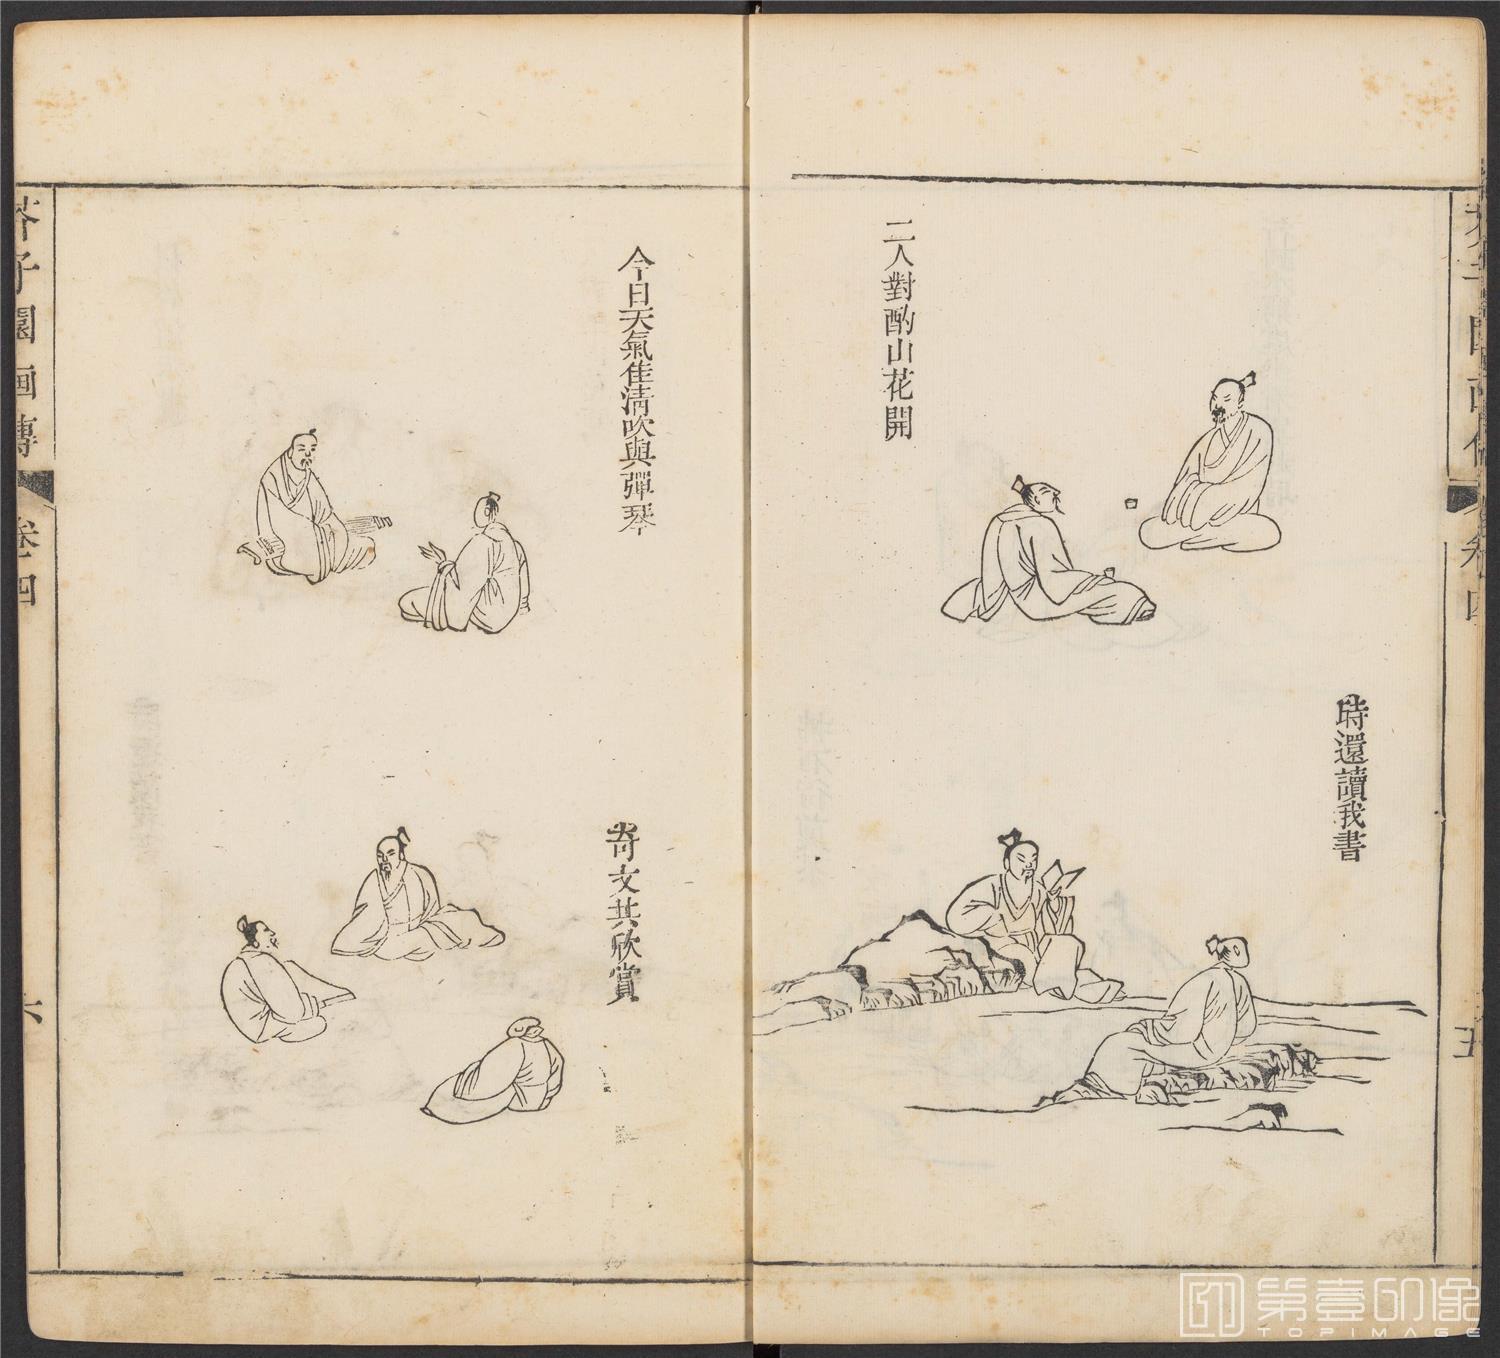 二人對酌山花開
時還讀我書
五
今日天氣佳清吹與彈琴
奇文共欣賞
芥子園画傳
卷四
六
第壹印像
TOPIMAGE